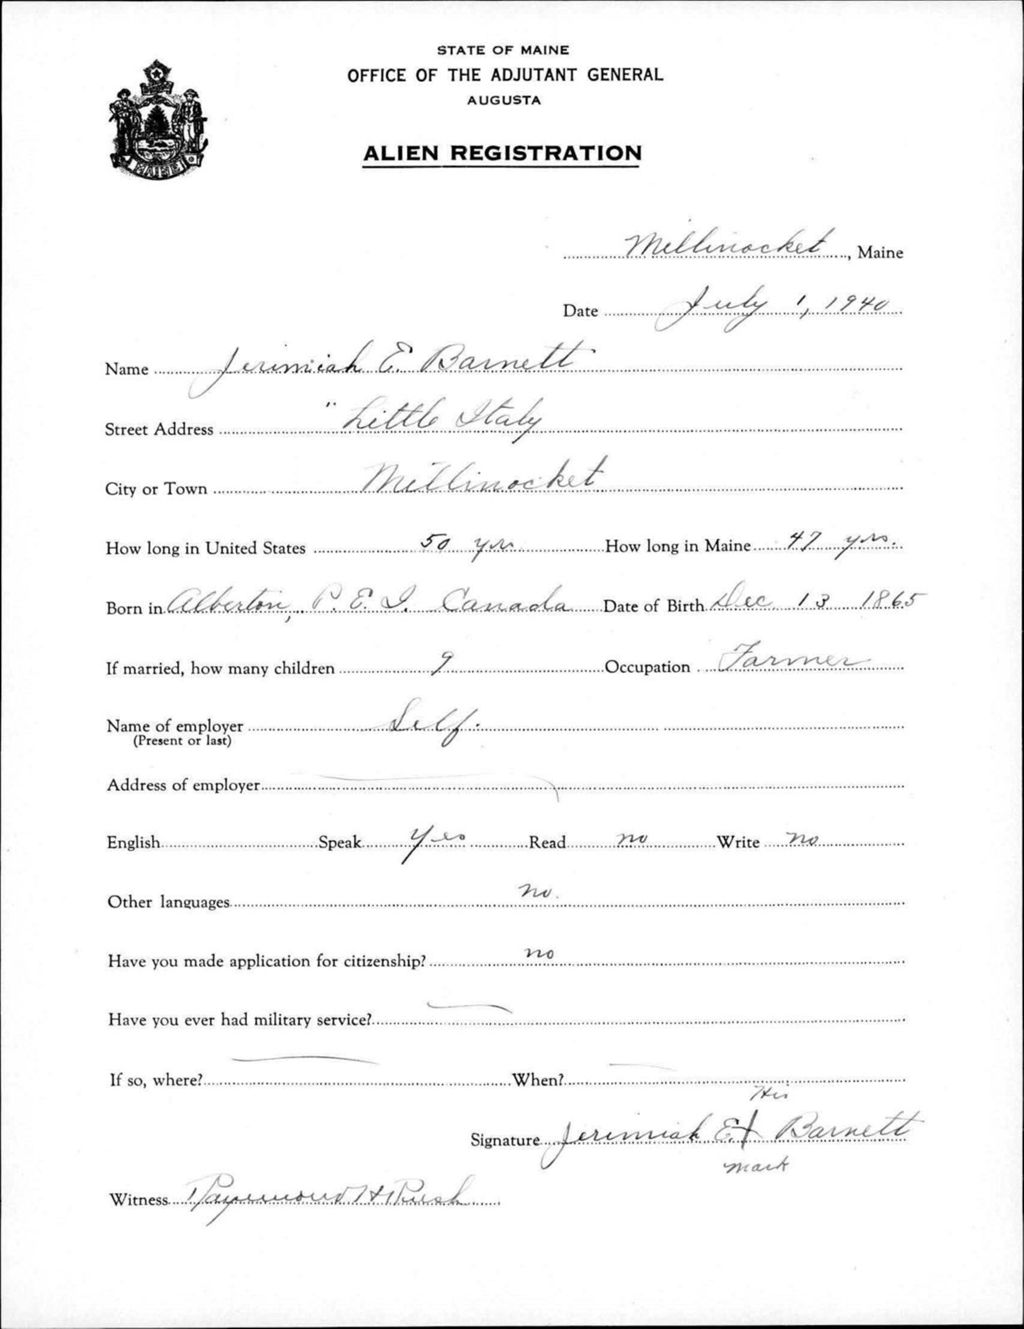 STATE OF MAINE
OFFICE OF THE ADJUTANT GENERAL
AUGUSTA
ALIEN REGISTRATION
MAINE
Millinocket, Maine
Date July 1, 1940
Name Jerimiah E. Barnett
Street Address " Little Italy
City or Town Millinocket
How long in United States 50 yrs How long in Maine 47 yrs.
Born in Alberton, P. E. I. Canada Date of Birth Dec 13 1865
If married, how many children 9 Occupation Farmer
Name of employer Self.
(Present or last)
Address of employer
English Speak Yes Read no Write no
Other languages no.
Have you made application for citizenship? no
Have you ever had military service?
If so, where? When?
His
Signature Jerimiah E. X Barnett
mark
Witness Raymond H Rush